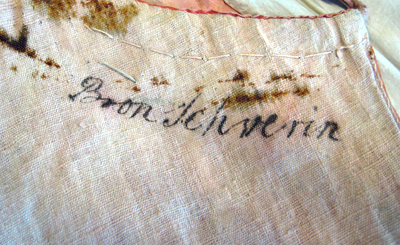 Bron Schverin